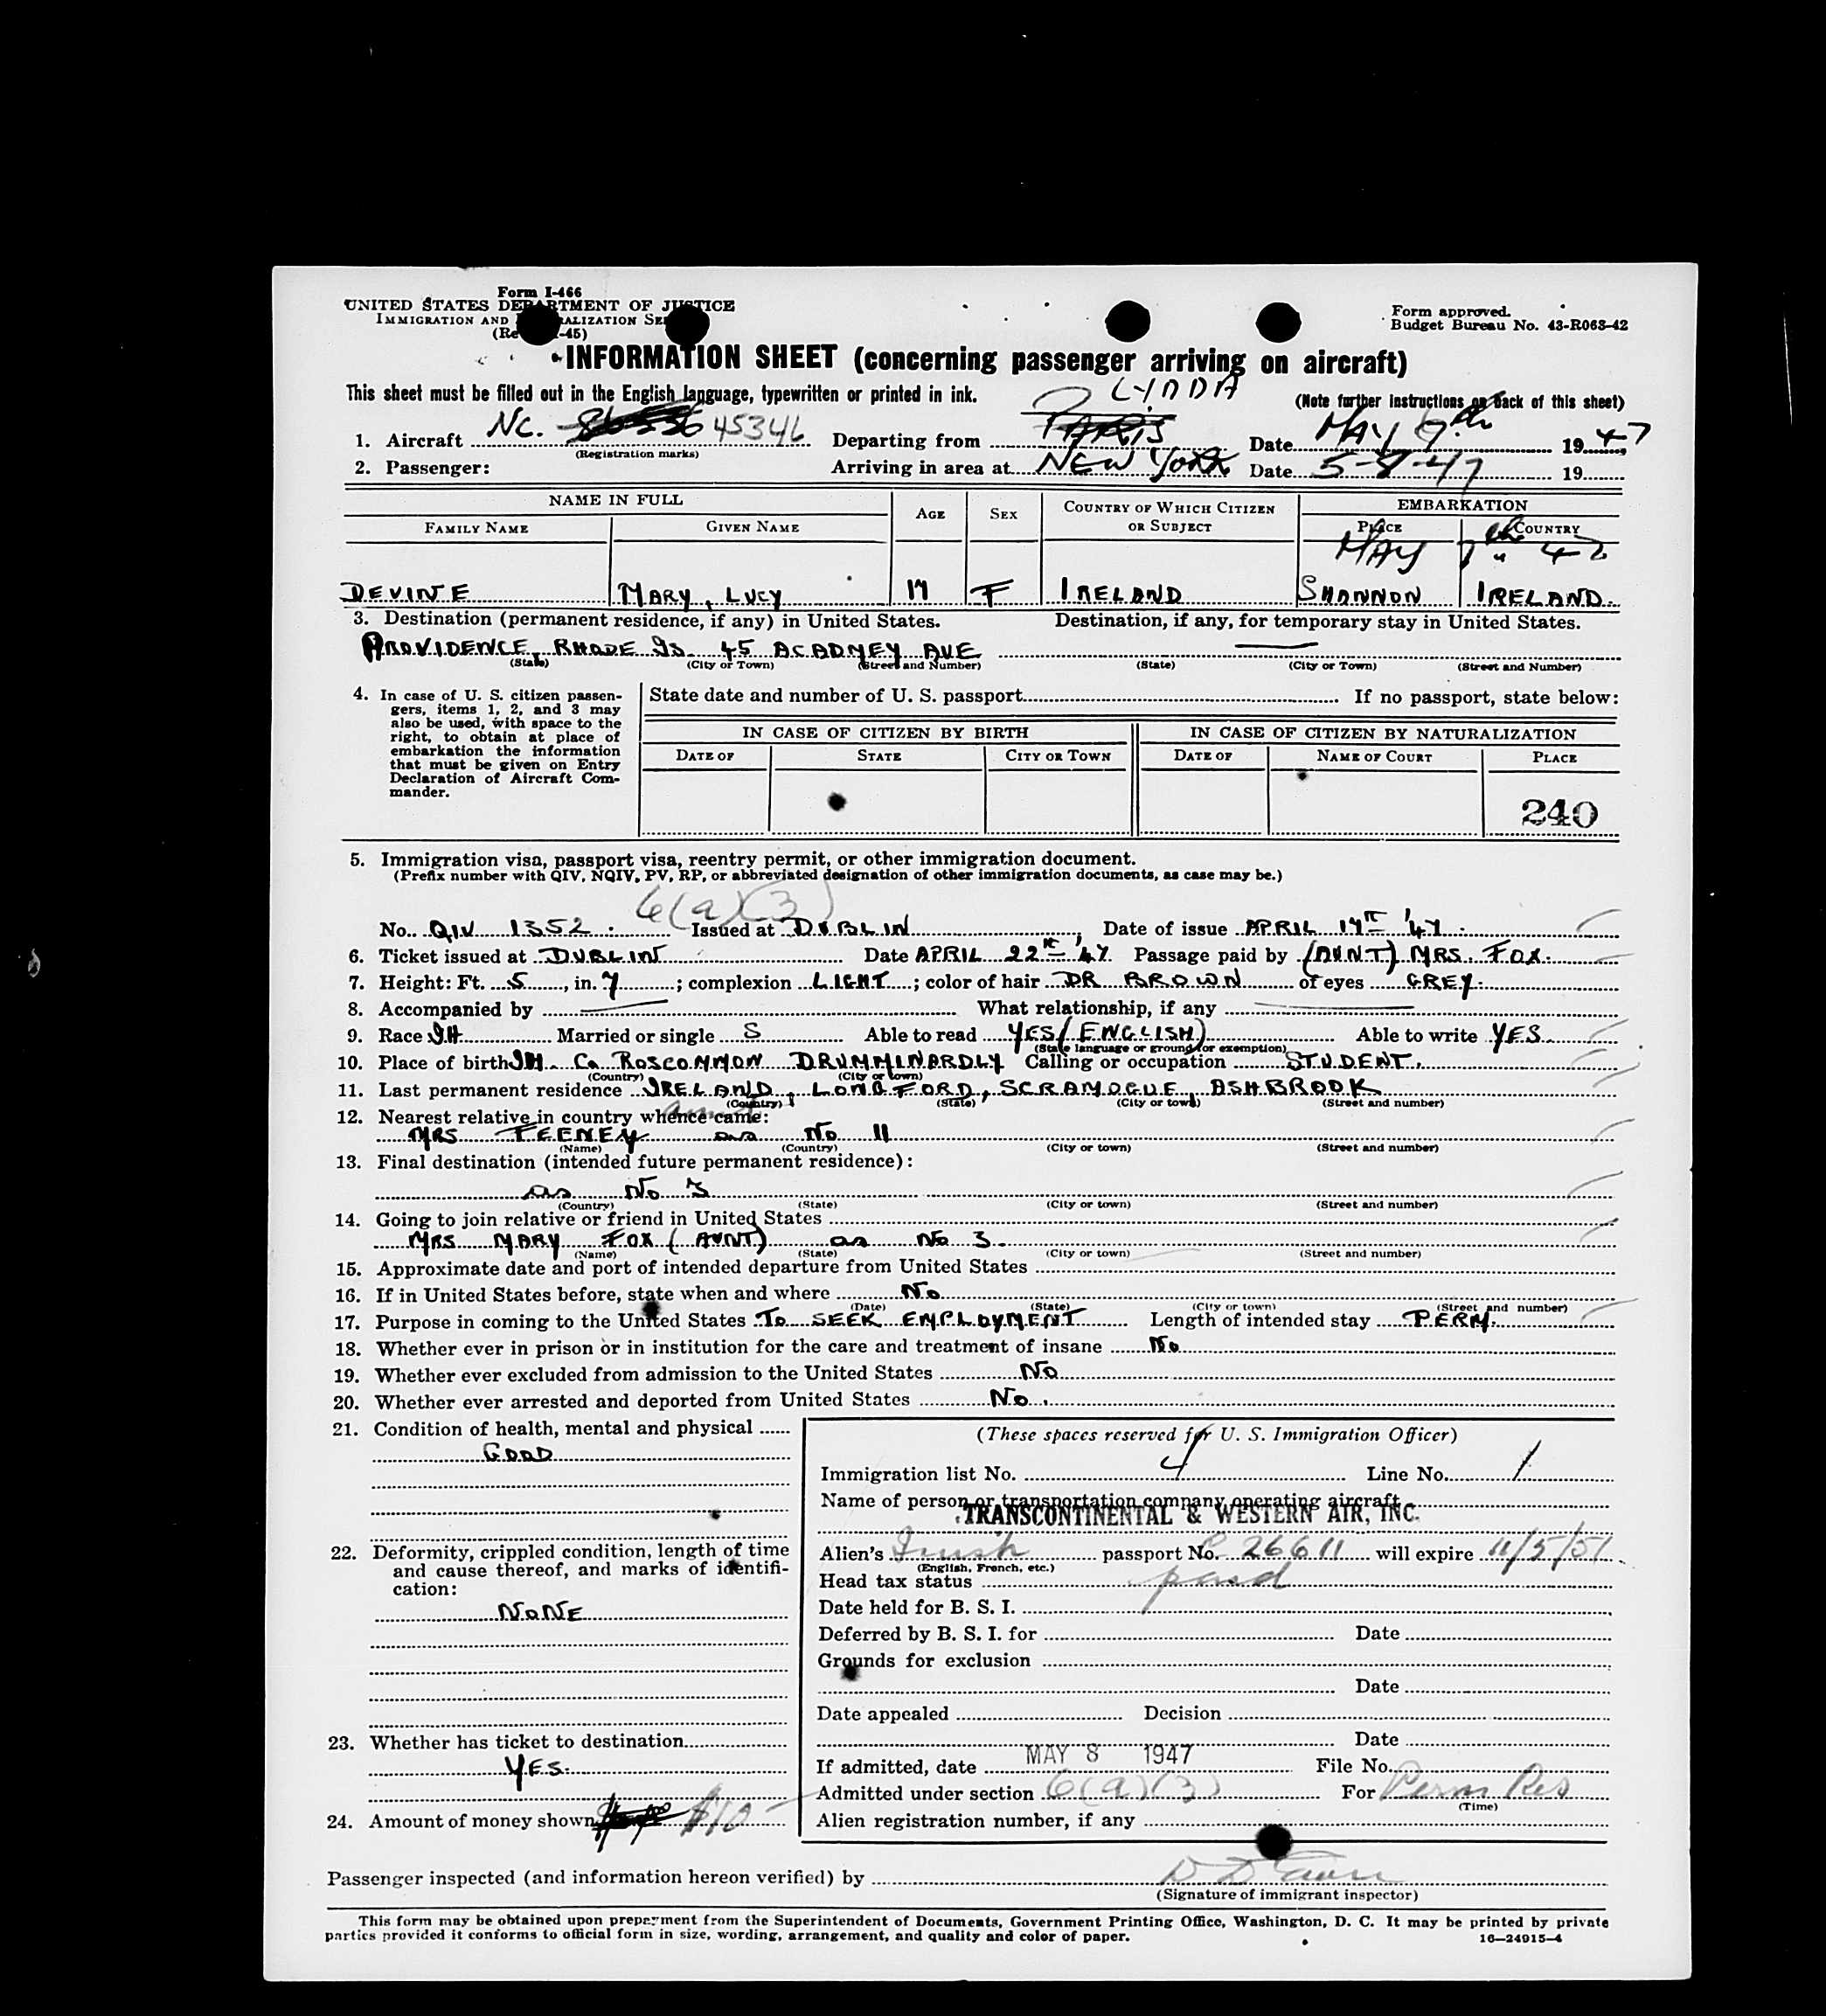 Form I-466
UNITED STATES DEPARTMENT OF JUSTICE
IMMIGRATION AND NATURALIZATION SERVICE
(Re -45)
Form approved.
Budget Bureau No. 43-R063-42
INFORMATION SHEET (concerning passenger arriving on aircraft)
This sheet must be filled out in the English language, typewritten or printed in ink.
LYDDA
(Note further instructions on back of this sheet)
1. Aircraft NC. 45346 Departing from PARIS Date MAY 7th 1947
(Registration marks)
2. Passenger: Arriving in area at NEW YORK Date 5-8-47 19
NAME IN FULL AGE SEX COUNTRY OF WHICH CITIZEN OR SUBJECT EMBARKATION
FAMILY NAME GIVEN NAME PLACE COUNTRY
MAY 7th 47
DEVINE MARY, LUCY 17 F IRELAND SHANNON IRELAND.
3. Destination (permanent residence, if any) in United States. Destination, if any, for temporary stay in United States.
PROVIDENCE, RHODE IS. 45 ACADMEY AVE —
(State) (City or Town) (Street and Number) (State) (City or Town) (Street and Number)
4. In case of U. S. citizen passengers, items 1, 2, and 3 may also be used, with space to the right, to obtain at place of embarkation the information that must be given on Entry Declaration of Aircraft Commander.
State date and number of U. S. passport If no passport, state below:
IN CASE OF CITIZEN BY BIRTH IN CASE OF CITIZEN BY NATURALIZATION
DATE OF STATE CITY OR TOWN DATE OF NAME OF COURT PLACE
240
5. Immigration visa, passport visa, reentry permit, or other immigration document.
(Prefix number with QIV, NQIV, PV, RP, or abbreviated designation of other immigration documents, as case may be.)
6(a)(3)
No. QIV 1352. Issued at DUBLIN Date of issue APRIL 17TH '47.
6. Ticket issued at DUBLIN Date APRIL 22TH '47. Passage paid by (AUNT) MRS. FOX.
7. Height: Ft. 5, in. 7; complexion LIGHT; color of hair DR BROWN of eyes GREY.
8. Accompanied by — What relationship, if any —
9. Race IH Married or single S Able to read YES (ENGLISH) Able to write YES
(State language or ground for exemption)
10. Place of birth IH. Co ROSCOMMON DRUMMINARDLY Calling or occupation STUDENT.
(Country) (City or town)
11. Last permanent residence IRELAND, LONGFORD, SCRAMOGUE, ASHBROOK
(Country) (State) (City or town) (Street and number)
12. Nearest relative in country whence came: aunt
MRS FEENEY as No 11
(Name) (Country) (City or town) (Street and number)
13. Final destination (intended future permanent residence):
as No 3
(Country) (State) (City or town) (Street and number)
14. Going to join relative or friend in United States
MRS MARY FOX (AUNT) as No 3.
(Name) (State) (City or town) (Street and number)
15. Approximate date and port of intended departure from United States
16. If in United States before, state when and where No
(Date) (State) (City or town) (Street and number)
17. Purpose in coming to the United States To SEEK EMPLOYMENT Length of intended stay PERM.
18. Whether ever in prison or in institution for the care and treatment of insane No
19. Whether ever excluded from admission to the United States No
20. Whether ever arrested and deported from United States No.
21. Condition of health, mental and physical
GOOD
22. Deformity, crippled condition, length of time and cause thereof, and marks of identification:
NONE
23. Whether has ticket to destination
YES.
24. Amount of money shown $10
(These spaces reserved for U. S. Immigration Officer)
Immigration list No. 4 Line No. 1
Name of person or transportation company operating aircraft
TRANSCONTINENTAL & WESTERN AIR, INC.
Alien's Irish passport No. 26611 will expire 11/5/51
(English, French, etc.)
Head tax status paid
Date held for B. S. I.
Deferred by B. S. I. for Date
Grounds for exclusion
Date
Date appealed Decision
Date
If admitted, date MAY 8 1947 File No.
Admitted under section 6(a)(3) For Perm Res
(Time)
Alien registration number, if any
Passenger inspected (and information hereon verified) by
(Signature of immigrant inspector)
This form may be obtained upon prepayment from the Superintendent of Documents, Government Printing Office, Washington, D. C. It may be printed by private
parties provided it conforms to official form in size, wording, arrangement, and quality and color of paper. 16—24915-4